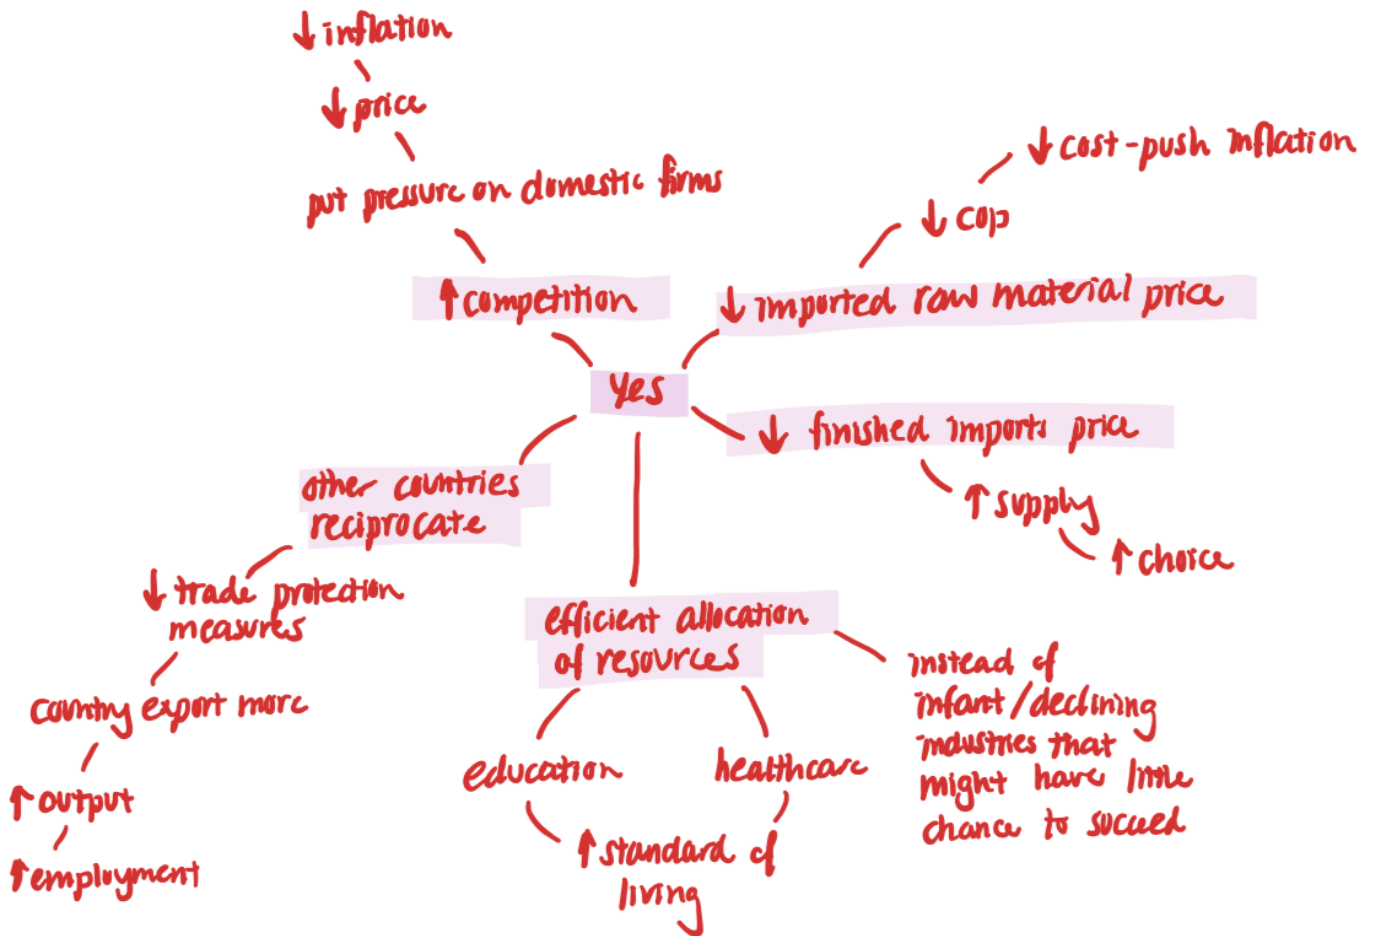 ↓ inflation
↓ price
put pressure on domestic firms
↑ competition
↓ cost-push inflation
↓ cop
↓ imported raw material price
yes
↓ finished imports price
↑ supply
↑ choice
other countries
reciprocate
↓ trade protection
measures
country export more
↑ output
↑ employment
efficient allocation
of resources
education
healthcare
↑ standard of
living
instead of
infant/declining
industries that
might have little
chance to succeed